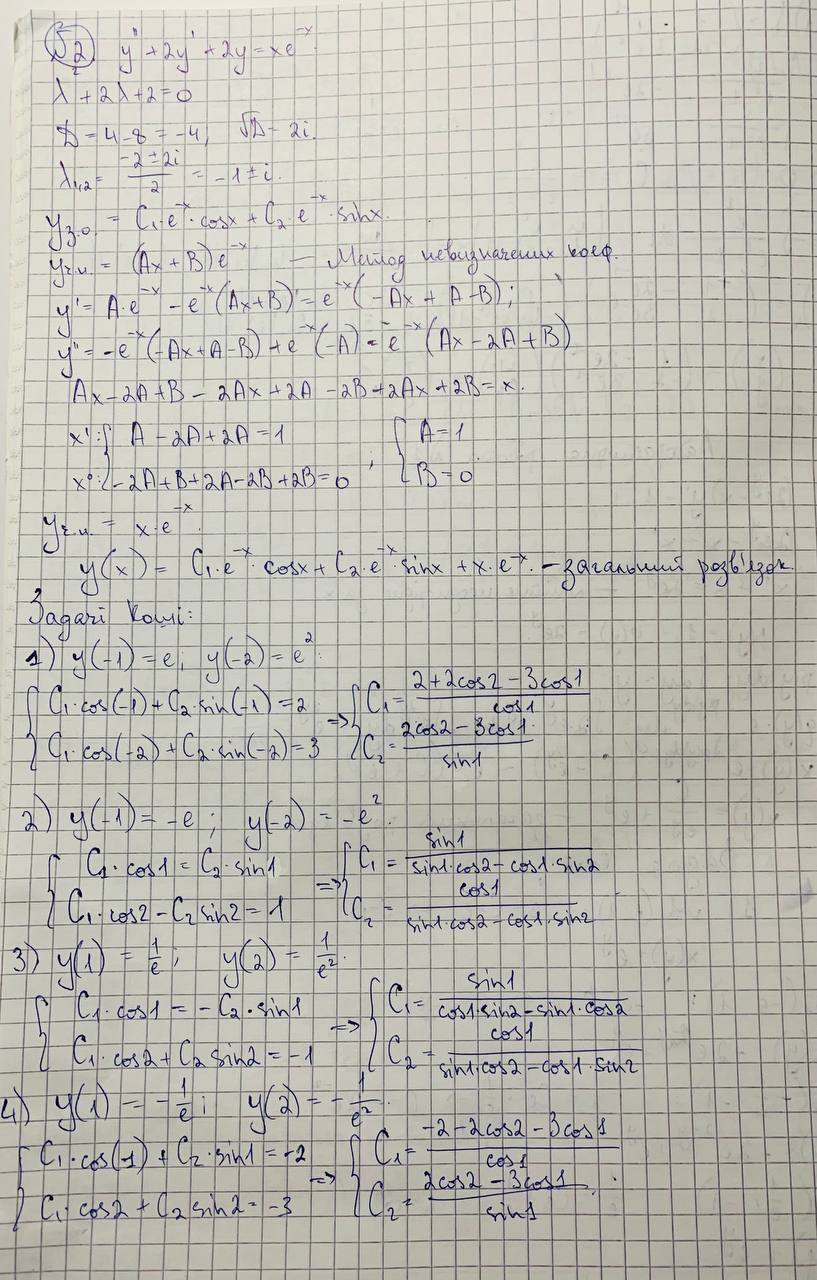 №2 y'' + 2y' + 2y = xe^{-x}
λ² + 2λ + 2 = 0
D = 4 - 8 = -4, √D = 2i.
λ_{1,2} = \frac{-2 ± 2i}{2} = -1 ± i.
y_{з.о.} = C₁·e^{-x}·cosx + C₂·e^{-x}·sinx.
y_{ч.н.} = (Ax + B)e^{-x} — Метод невизначених коеф.
y' = A·e^{-x} - e^{-x}(Ax+B) = e^{-x}(-Ax + A - B);
y'' = -e^{-x}(-Ax + A - B) + e^{-x}(-A) = e^{-x}(Ax - 2A + B)
Ax - 2A + B - 2Ax + 2A - 2B + 2Ax + 2B = x.
x¹: { A - 2A + 2A = 1 { A = 1
x⁰: { -2A + B + 2A - 2B + 2B = 0 ; { B = 0
y_{ч.н.} = x·e^{-x}.
y(x) = C₁·e^{-x}·cosx + C₂·e^{-x}·sinx + x·e^{-x}. - загальний розв'язок
Задачі Коші:
1) y(-1) = e; y(-2) = e².
{ C₁·cos(-1) + C₂·sin(-1) = 2 => { C₁ = \frac{2 + 2cos2 - 3cos1}{cos1}
{ C₁·cos(-2) + C₂·sin(-2) = 3 { C₂ = \frac{2cos2 - 3cos1}{sin1}
2) y(-1) = -e; y(-2) = -e².
{ C₁·cos1 = C₂·sin1 => { C₁ = \frac{sin1}{sin1·cos2 - cos1·sin2}
{ C₁·cos2 - C₂sin2 = 1 { C₂ = \frac{cos1}{sin1·cos2 - cos1·sin2}
3) y(1) = \frac{1}{e}; y(2) = \frac{1}{e²}.
{ C₁·cos1 = -C₂·sin1 => { C₁ = \frac{sin1}{cos1·sin2 - sin1·cos2}
{ C₁·cos2 + C₂sin2 = -1 { C₂ = \frac{cos1}{sin1·cos2 - cos1·sin2}
4) y(1) = -\frac{1}{e}; y(2) = -\frac{1}{e²}.
{ C₁·cos(-1) + C₂·sin1 = -2 => { C₁ = \frac{-2 - 2cos2 - 3cos1}{cos1}
{ C₁·cos2 + C₂sin2 = -3 { C₂ = \frac{2cos2 - 3cos1}{sin1}